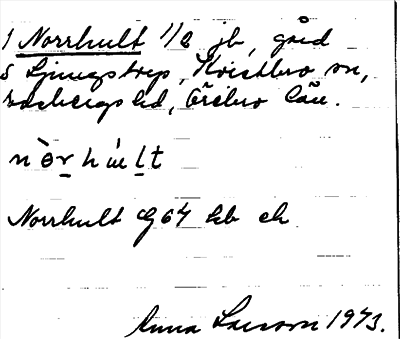 1 Norrhult 1/2 jb, gård
S Ljungstorp, Kvistbro sn,
hd, Örebro län.
nòrhult
Norrhult G64 kb ek
Anna Larsson 1973.